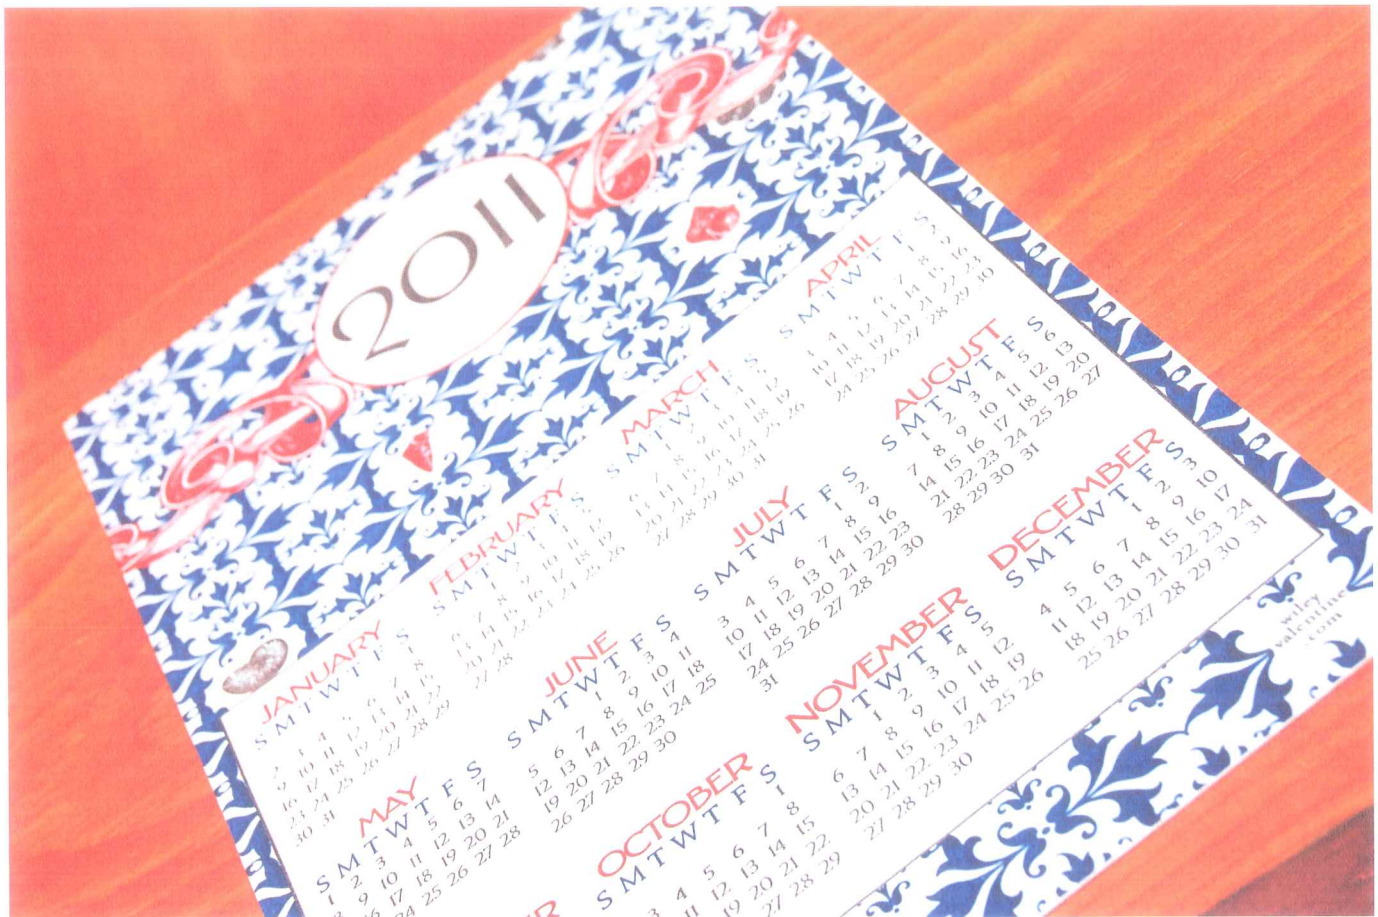 2011
JANUARY
S M T W T F S
1
2 3 4 5 6 7 8
9 10 11 12 13 14 15
16 17 18 19 20 21 22
23 24 25 26 27 28 29
30 31
FEBRUARY
S M T W T F S
1 2 3 4 5
6 7 8 9 10 11 12
13 14 15 16 17 18 19
20 21 22 23 24 25 26
27 28
MARCH
S M T W T F S
1 2 3 4 5
6 7 8 9 10 11 12
13 14 15 16 17 18 19
20 21 22 23 24 25 26
27 28 29 30 31
APRIL
S M T W T F S
1 2
3 4 5 6 7 8 9
10 11 12 13 14 15 16
17 18 19 20 21 22 23
24 25 26 27 28 29 30
MAY
S M T W T F S
1 2 3 4 5 6 7
8 9 10 11 12 13 14
17 18 19 20 21
24 25 26 27 28
JUNE
S M T W T F S
1 2 3 4
5 6 7 8 9 10 11
12 13 14 15 16 17 18
19 20 21 22 23 24 25
26 27 28 29 30
JULY
S M T W T F S
1 2
3 4 5 6 7 8 9
10 11 12 13 14 15 16
17 18 19 20 21 22 23
24 25 26 27 28 29 30
31
AUGUST
S M T W T F S
1 2 3 4 5 6
7 8 9 10 11 12 13
14 15 16 17 18 19 20
21 22 23 24 25 26 27
28 29 30 31
ER
OCTOBER
S M T W T F S
1
3 4 5 6 7 8
11 12 13 14 15
19 20 21 22
27 28 29
NOVEMBER
S M T W T F S
1 2 3 4 5
6 7 8 9 10 11 12
13 14 15 16 17 18 19
20 21 22 23 24 25 26
27 28 29 30
DECEMBER
S M T W T F S
1 2 3
4 5 6 7 8 9 10
11 12 13 14 15 16 17
18 19 20 21 22 23 24
25 26 27 28 29 30 31
wiley
valentine
.com